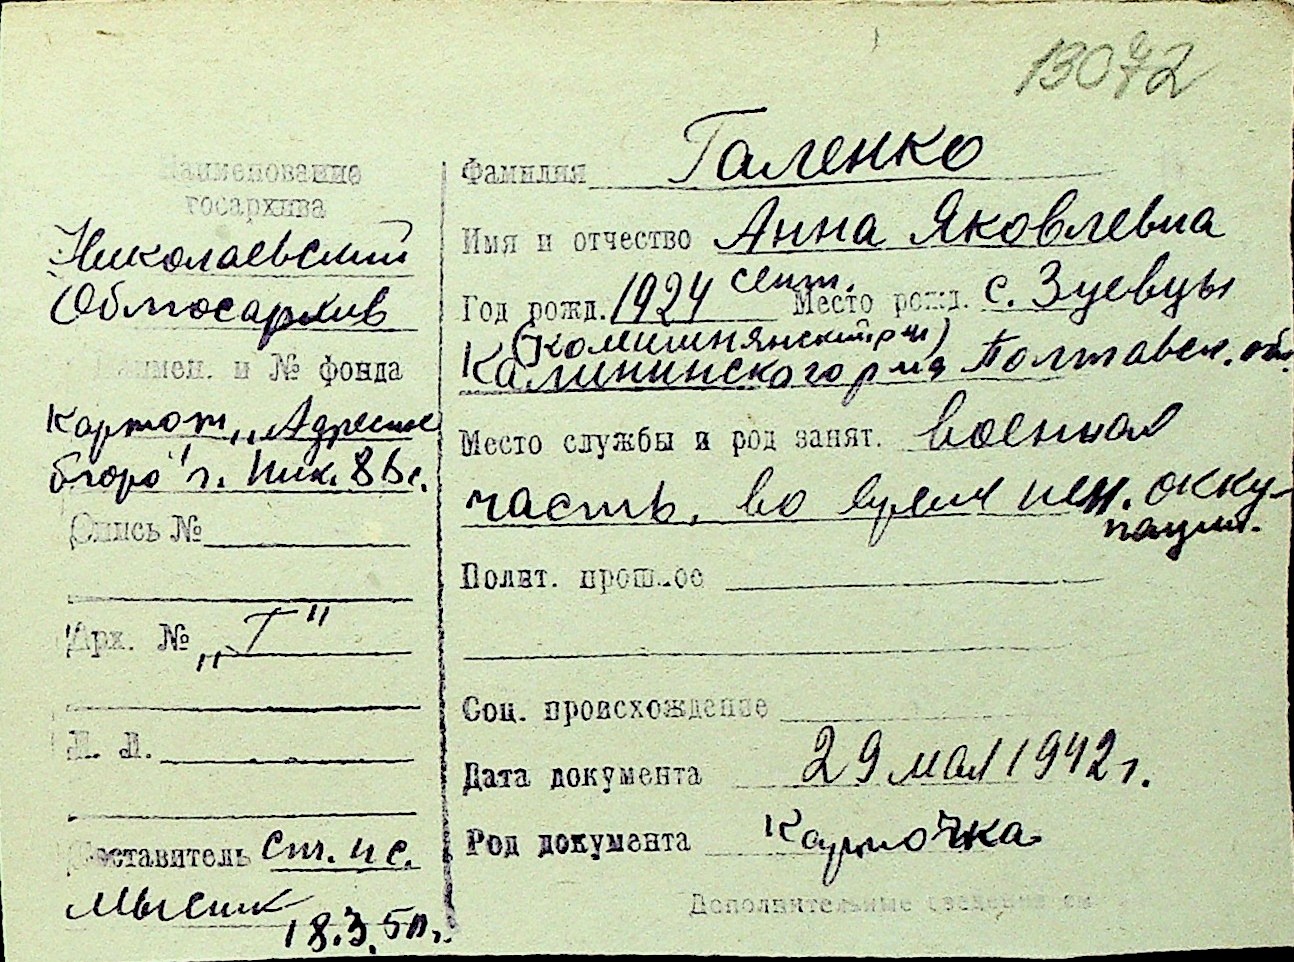 13072
Наименование
госархива
Николаевский
Облгосархив
Наимен. и № фонда
Картот. „Адресное
бюро" г. Ник.
Опись №
Арх. № „Г"
Л. Л.
Составитель ст. нс.
Мысик
18.3.50г.
Фамилия Галенко
Имя и отчество Анна Яковлевна
Год рожд. 1924 сент. Место рожд. с. Зуевцы
(Комишнянский р-н)
Калининского р-на Полтавск. обл.
Место службы и род занят. военная
часть, во время нем. окку-
пации.
Полит. прошлое
Соц. происхождение
Дата документа 29 мая 1942 г.
Род документа Карточка
Дополнительные сведения см